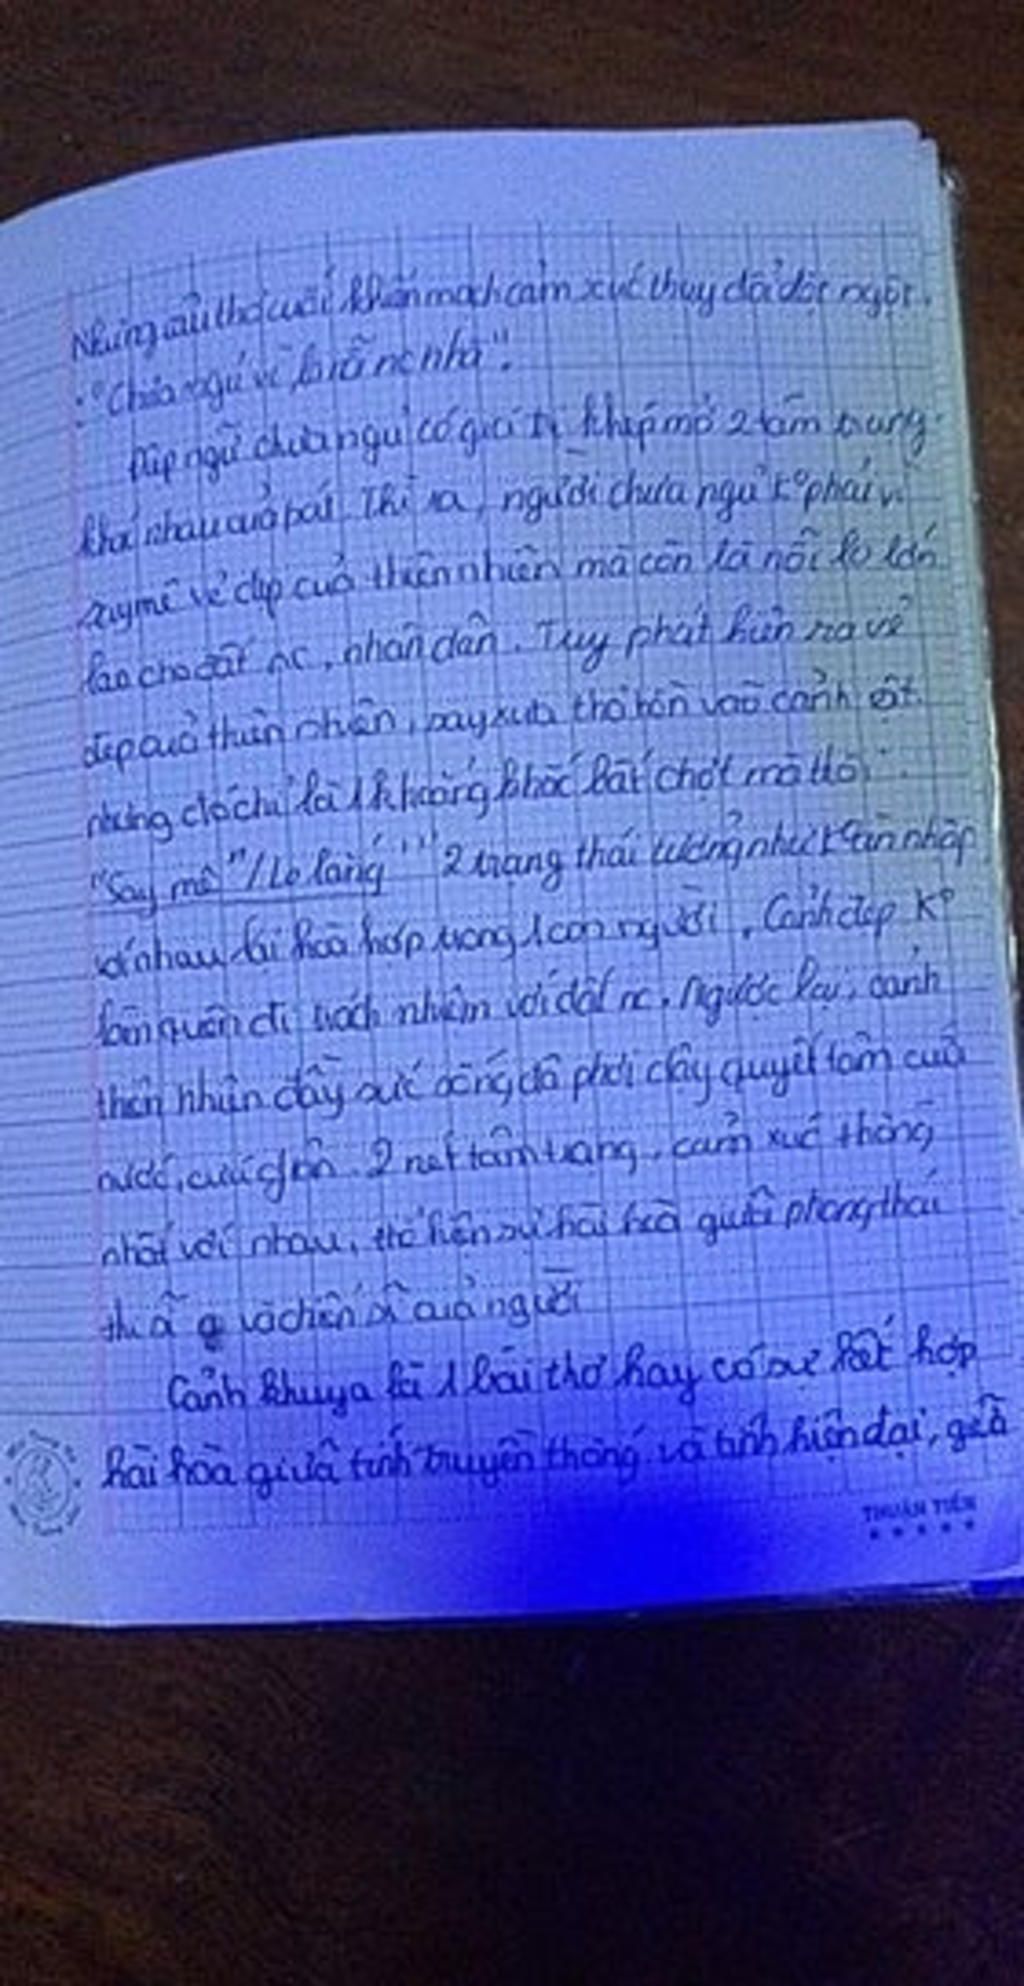 Nhưng câu thơ cuối khiến mạch cảm xúc thay đổi đột ngột.
: "Chưa ngủ vì lo nỗi nc nhà".
Điệp ngữ chưa ngủ có giá trị khép mở 2 tâm trạng
khác nhau của Thì ra, người chưa ngủ k° phải vì
say mê vẻ đẹp của thiên nhiên mà còn là nỗi lo lớn
lao cho đất nc, nhân dân. Tuy phát hiện ra vẻ
đẹp của thiên nhiên, say sưa thả hồn vào cảnh vật
nhưng đó chỉ là 1 khoảng khắc bất chợt mà thôi.
"Say mê"/ Lo lắng" 2 trạng thái tưởng như k° ăn nhập
với nhau lại hoà hợp trong 1 con người. Cảnh đẹp k°
làm quên đi trách nhiệm với đất nc. Ngược lại, cảnh
thiên nhiên đầy sức sống đã phơi dậy quyết tâm cứu
nước, cứu dân. 2 nét tâm trạng, cảm xúc thống
nhất với nhau, thể hiện sự hài hoà giữa phong thái
thi sĩ và chiến sĩ của người
Cảnh khuya là 1 bài thơ hay có sự kết hợp
hài hòa giữa tính truyền thống và tính hiện đại, giữa
THUẬN TIẾN